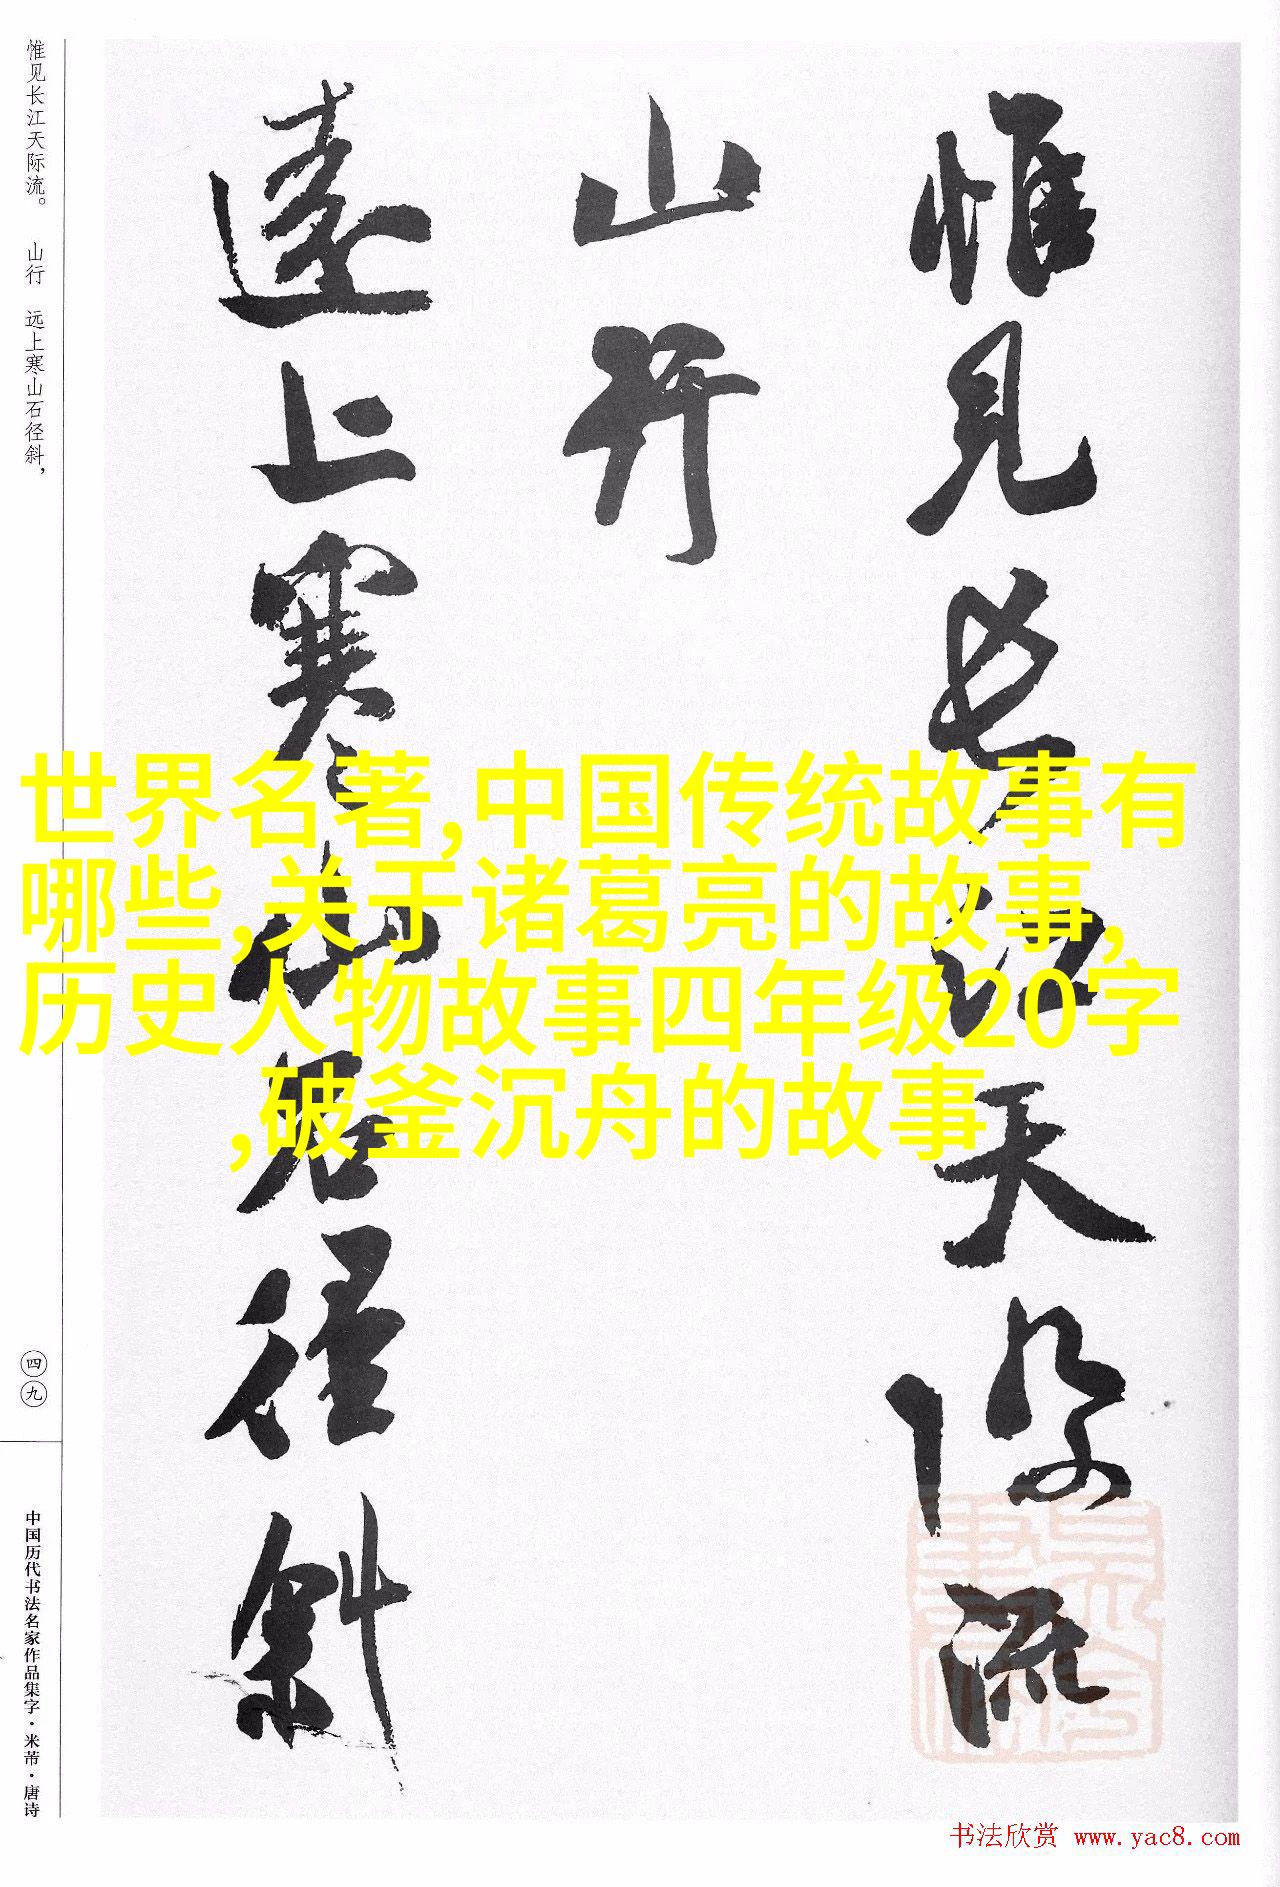 惟见长江天际流。 山行 远上寒山石径斜，
四九
中国历代书法名家作品集字·米芾·唐诗
惟見長江天際流
山行
遠上寒山石徑斜
世界名著,中国传统故事有
哪些,关于诸葛亮的故事,
历史人物故事四年级20字
,破釜沉舟的故事
书法欣赏 www.yac8.com